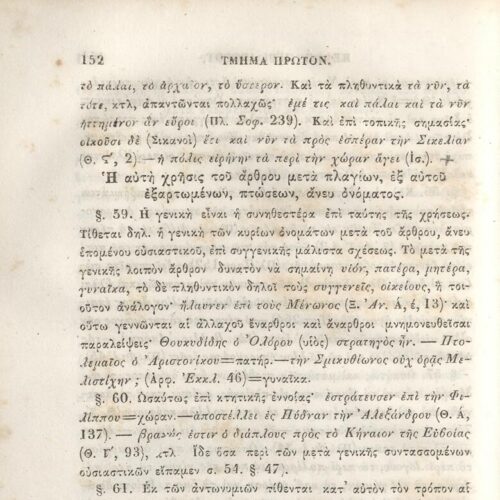 152 ΤΜΗΜΑ ΠΡΩΤΟΝ.
τὸ πάλαι, τὸ ἀρχαῖον, τὸ ὕστερον. Καὶ τὰ πληθυντικὰ τὰ νῦν, τὰ
τότε, κτλ, ἀπαντῶνται πολλαχῶς· ἐμέ τις καὶ πάλαι καὶ τὰ νῦν
ἡττημένον ἂν εὕροι (Πλ. Σοφ. 239). Καὶ ἐπὶ τοπικῆς σημασίας·
οἰκοῦσι δὲ (Σικανοὶ) ἔτι καὶ νῦν τὰ πρὸς ἑσπέραν τὴν Σικελίαν
(Θ. ϛ, 2) — ἡ πόλις εἰρήνην τὰ περὶ τὴν χώραν ἄγει (Ισ.)
Ἡ αὐτὴ χρῆσις τοῦ ἄρθρου μετὰ πλαγίων, ἐξ αὐτοῦ
ἐξαρτωμένων, πτώσεων, ἄνευ ὀνόματος.
§. 59. Ἡ γενικὴ εἶναι ἡ συνηθεστέρα ἐπὶ ταύτης τῆς χρήσεως.
Τίθεται δηλ. ἡ γενικὴ τῶν κυρίων ὀνομάτων μετὰ τοῦ ἄρθρου, ἄνευ
ἑπομένου οὐσιαστικοῦ, ἐπὶ συγγενικῆς μάλιστα σχέσεως. Τὸ μετὰ τῆς
γενικῆς λοιπὸν ἄρθρον δυνατὸν νὰ σημαίνῃ υἱόν, πατέρα, μητέρα,
γυναῖκα, τὸ δὲ πληθυντικὸν δηλοῖ τοὺς συγγενεῖς, οἰκείους, ἤ τοι-
οῦτον ἀνάλογον· ἤλαυνεν ἐπὶ τοὺς Μένωνος (Ξ. Ἀν. Α, έ, 13)· καὶ
οὕτω γεννῶνται αἱ ἀλλαχοῦ ἔναρθροι καὶ ἄναρθροι μνημονευθεῖσαι
παραλείψεις· Θουκυδίδης ὁ Ὀλόρου (υἱὸς) στρατηγὸς ἦν. — Πτο-
λεμαῖος ὁ Ἀριστονίκου=πατήρ. — τὴν Σμικυθίωνος οὐχ ὁρᾷς Με-
λιστίχην ; (Ἀρφ. Ἐκκλ. 46)=γυναῖκα.
§. 60. Ὡσαύτως ἐπὶ κτητικῆς ἐννοίας· ἐστράτευσεν ἐπὶ τὴν Φι-
λίππου=χώραν.—ἀποστέλλει ἐς Πύδναν τὴν Ἀλεξάνδρου (Θ. Α,
137). — βραχύς ἐστιν ὁ διάπλους πρὸς τὸ Κήναιον τῆς Εὐβοίας
(Θ. Γ, 93), κτλ. Ἰδὲ ὅσα περὶ τῶν μετὰ γενικῆς συντασσομένων
οὐσιαστικῶν εἴπαμεν σ. 54. § 47).
§. 61. Ἐκ τῶν ἀντωνυμιῶν τίθενται κατ' αὐτὸν τὸν τρόπον αἱ